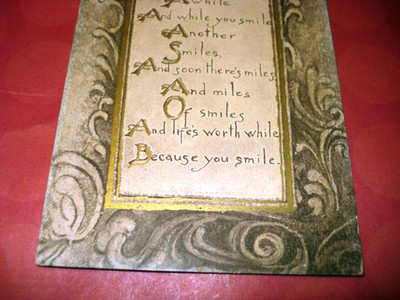 Awhile
And while you smile
Another
Smiles,
And soon there's miles
And miles
Of smiles
And life's worth while
Because you smile.